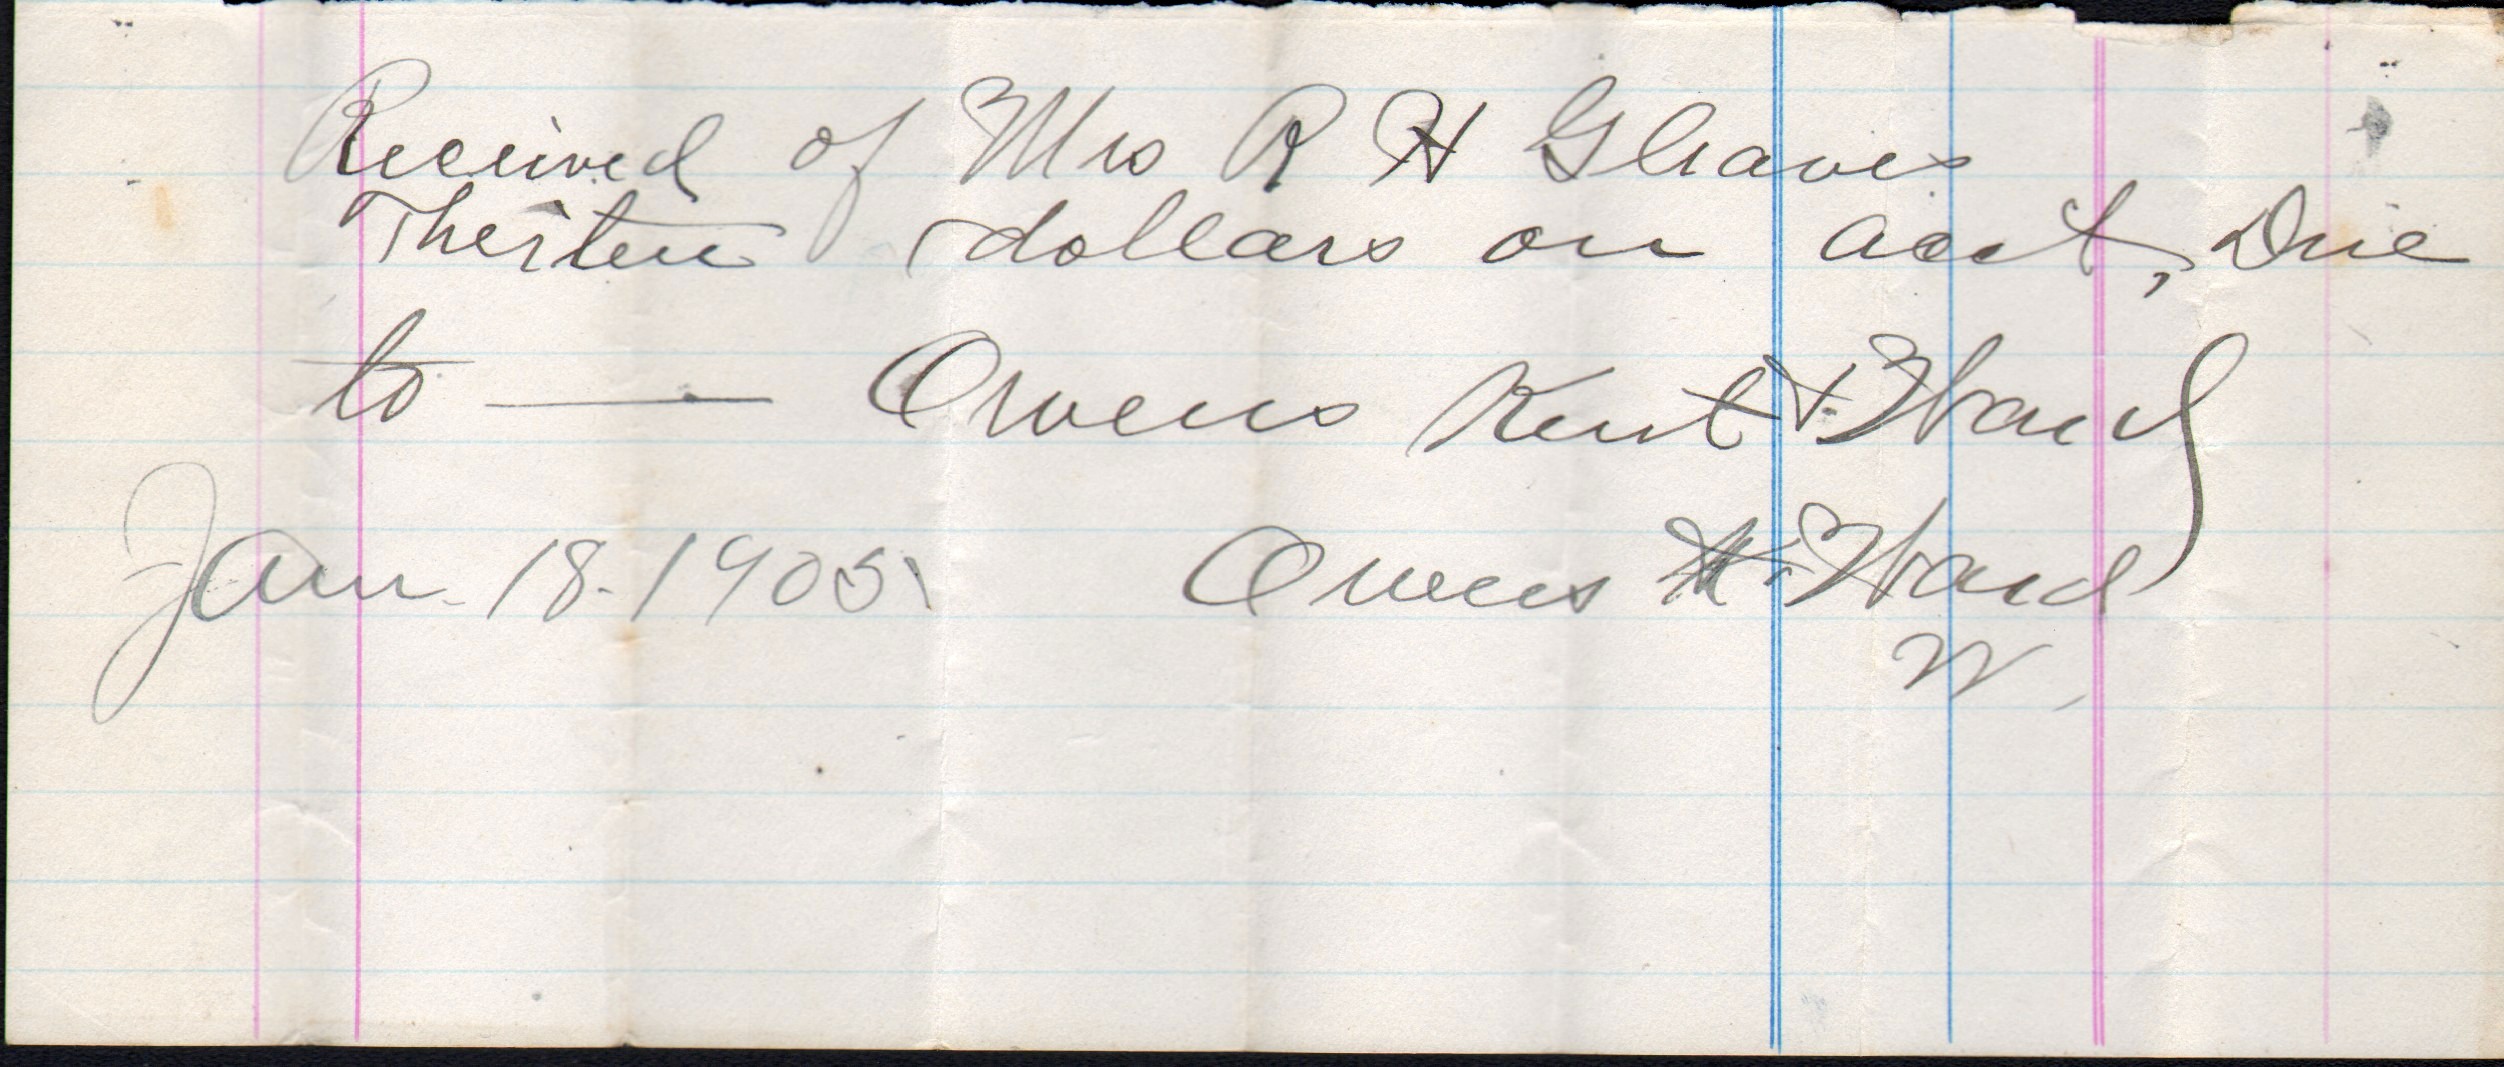 Received of Mrs R H Gleaves
Therteen dollars on acct, Due
to — Owens Kent & Ward
Jan. 18. 1905 Owens & Ward
W